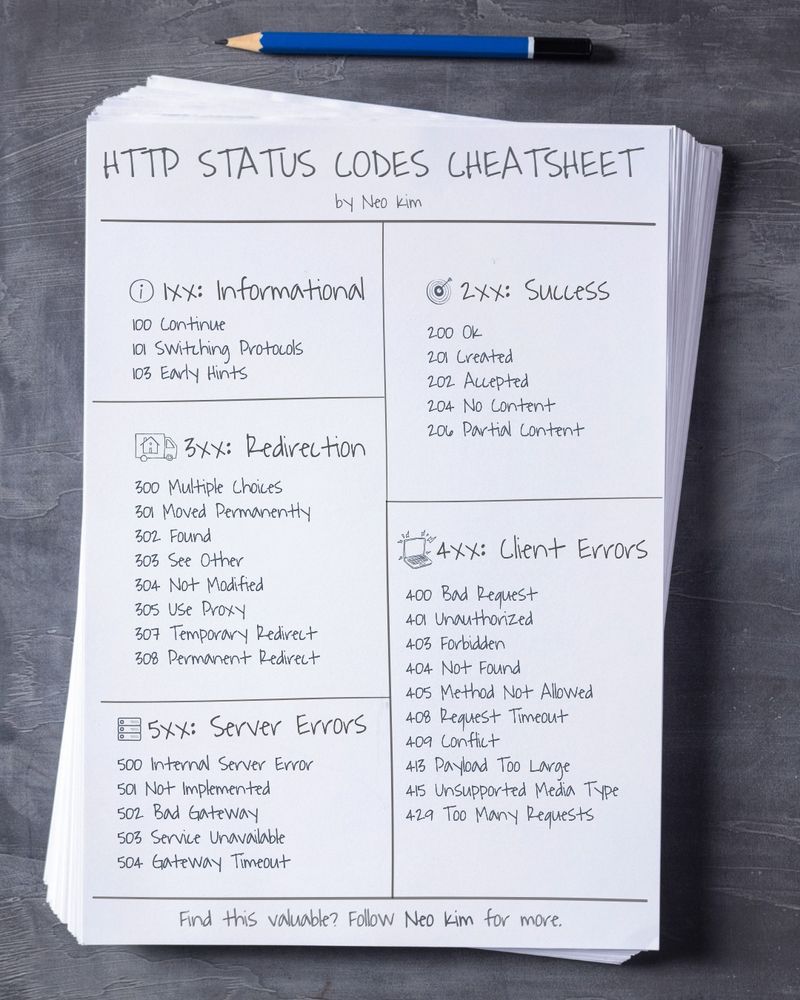 HTTP STATUS CODES CHEATSHEET
by Neo Kim
1xx: Informational
100 Continue
101 Switching Protocols
103 Early Hints
2xx: Success
200 Ok
201 Created
202 Accepted
204 No Content
206 Partial Content
3xx: Redirection
300 Multiple Choices
301 Moved Permanently
302 Found
303 See Other
304 Not Modified
305 Use Proxy
307 Temporary Redirect
308 Permanent Redirect
4xx: Client Errors
400 Bad Request
401 Unauthorized
403 Forbidden
404 Not Found
405 Method Not Allowed
408 Request Timeout
409 Conflict
413 Payload Too Large
415 Unsupported Media Type
429 Too Many Requests
5xx: Server Errors
500 Internal Server Error
501 Not Implemented
502 Bad Gateway
503 Service Unavailable
504 Gateway Timeout
Find this valuable? Follow Neo Kim for more.